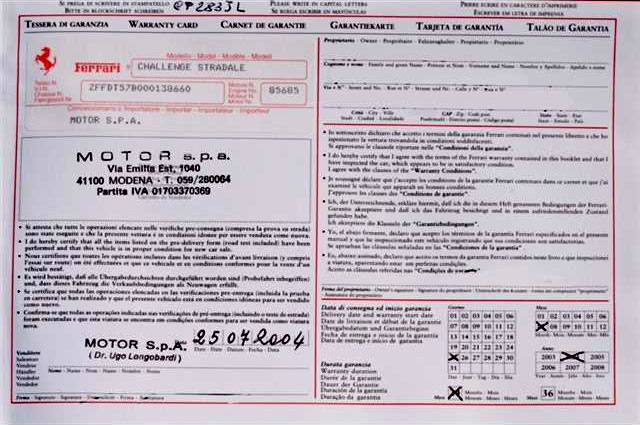 SI PREGA DI SCRIVERE IN STAMPATELLO
BITTE IN BLOCKSCHRIFT SCHREIBEN
PLEASE WRITE IN CAPITAL LETTERS
SE RUEGA ESCRIBIR EN MAYUSCULAS
PRIÈRE ECRIRE EN CARACTERE D'IMPRIMERIE
ESCREVER EM LETRA DE IMPRENSA
TESSERA DI GARANZIA WARRANTY CARD CARNET DE GARANTIE GARANTIEKARTE TARJETA DE GARANTIA TALÃO DE GARANTIA
Modello - Model - Modèle - Modell
Ferrari CHALLENGE STRADALE
Telaio N.
Chassis N.
ZFFDT57B000138660
Motore N.
Engine No.
Moteur N.
Motor N.
85685
Concessionario o Importatore - Importer - Importateur - Importeur
MOTOR S.P.A.
MOTOR s.p.a.
Via Emilia Est, 1040
41100 MODENA - T. 059/280064
Partita IVA 01703370369
• Si attesta che tutte le operazioni elencate nelle verifiche pre-consegna (compresa la prova su strada) sono state eseguite e che la presente vettura è in condizioni idonee per essere venduta come nuova.
• I do hereby certify that all the items listed on the pre-delivery form (road test included) have been performed and that this vehicle is in proper condition for new car sale.
• Nous certifions que toutes les operations incluses dans les vérifications d'avant livraison (y compris l'essai sur route) ont été effectuées et que ce véhicule est en conditions pour la vente d'un véhicule neuf.
• Es wird bestätigt, daß alle Übergabedurchsichten durchgeführt worden sind (Probefahrt inbegriffen) und, dass dieses Fahrzeug die Verkaufsbedingungen als Neuwagen erfüllt.
• Se certifica que todas las operaciones elencadas en las verificaciones pre-entrega (incluida la prueba en carretera) se han realizado y que el presente vehiculo está en condiciones idóneas para ser vendido como nuevo.
• Confirma-se que todas as operações indicadas nas verificações de pre-entrega (incluindo o teste de estrada) foram executadas e que esta viatura se encontra em condições conformes para ser vendida como viatura nova.
MOTOR S.P.A.
(Dr. Ugo Longobardi)
25 07 2004
Data - Date - Date - Datum - Fecha - Data
Venditore
Salesman
Vendeur
Händler
Vendedor
Vendedor
Nome - Name - Nom - Name - Nombre - Nome
Firma - Signature - Signature - Unterschrift - Firma - Assinatura
Proprietario - Owner - Propriétaire - Fahrzeughalter - Propietario - Proprietário
Città - City - Ville
CAP - Zip - Code post.
Stato - State - État
• Io sottoscritto dichiaro che accetto i termini della garanzia Ferrari contenuti nel presente libretto e che ho ispezionato la vettura trovandola in condizioni soddisfacenti.
Si approvano le clausole riportate nelle "Condizioni della garanzia".
• I do hereby certify that I agree with the terms of the Ferrari warranty contained in this booklet and that I have inspected the car, which appears to be in satisfactory condition.
I agree with the clauses of the "Warranty Conditions".
• Je soussigné déclare que j'accepte les conditions de la garantie Ferrari contenues dans ce carnet et que j'ai examiné le véhicule qui apparaît en bonnes conditions.
J'approuve les clauses des "Conditions de garantie".
• Ich, der Unterzeichnende, erkläre hiermit, daß ich die in diesem Heft genannten Bedingungen der Ferrari-Garantie akzeptiere und daß ich das Fahrzeug besichtigt und in einem zufriedenstellenden Zustand gefunden habe.
Ich akzeptiere die Klauseln der "Garantiebedingungen".
• Yo, el abajo firmante, declaro que acepto los términos de la garantía Ferrari especificados en el presente manual y que he inspeccionado este vehículo registrando que sus condiciones son satisfactorias.
Se aprueban las cláusulas señaladas en las "Condiciones de la garantía".
• Eu, abaixo assinado, declaro que aceito os termos da garantia Ferrari contidos neste livro e que inspeccionei a viatura, aparentando estar em perfeitas condições.
Aceito as cláusulas referidas nas "Condições de garantia".
Data di consegna ed inizio garanzia
Delivery date and warranty start date
Date de livraison et début de la garantie
Übergabedatum und Garantiebeginn
Fecha de entrega e inicio de la garantía
Data de entrega e início de garantia
01 02 03 04 05 06
07 08 09 10 11 12
13 14 15 16 17 18
19 20 21 22 23 24
26 27 28 29 30
31
01 02 03 04 05 06
08 09 10 11 12
2003 2005
2006 2007 2008
Durata garanzia
Warranty duration
Durée de la garantie
Dauer der Garantie
Duración de la garantía
Duração da garantia
36